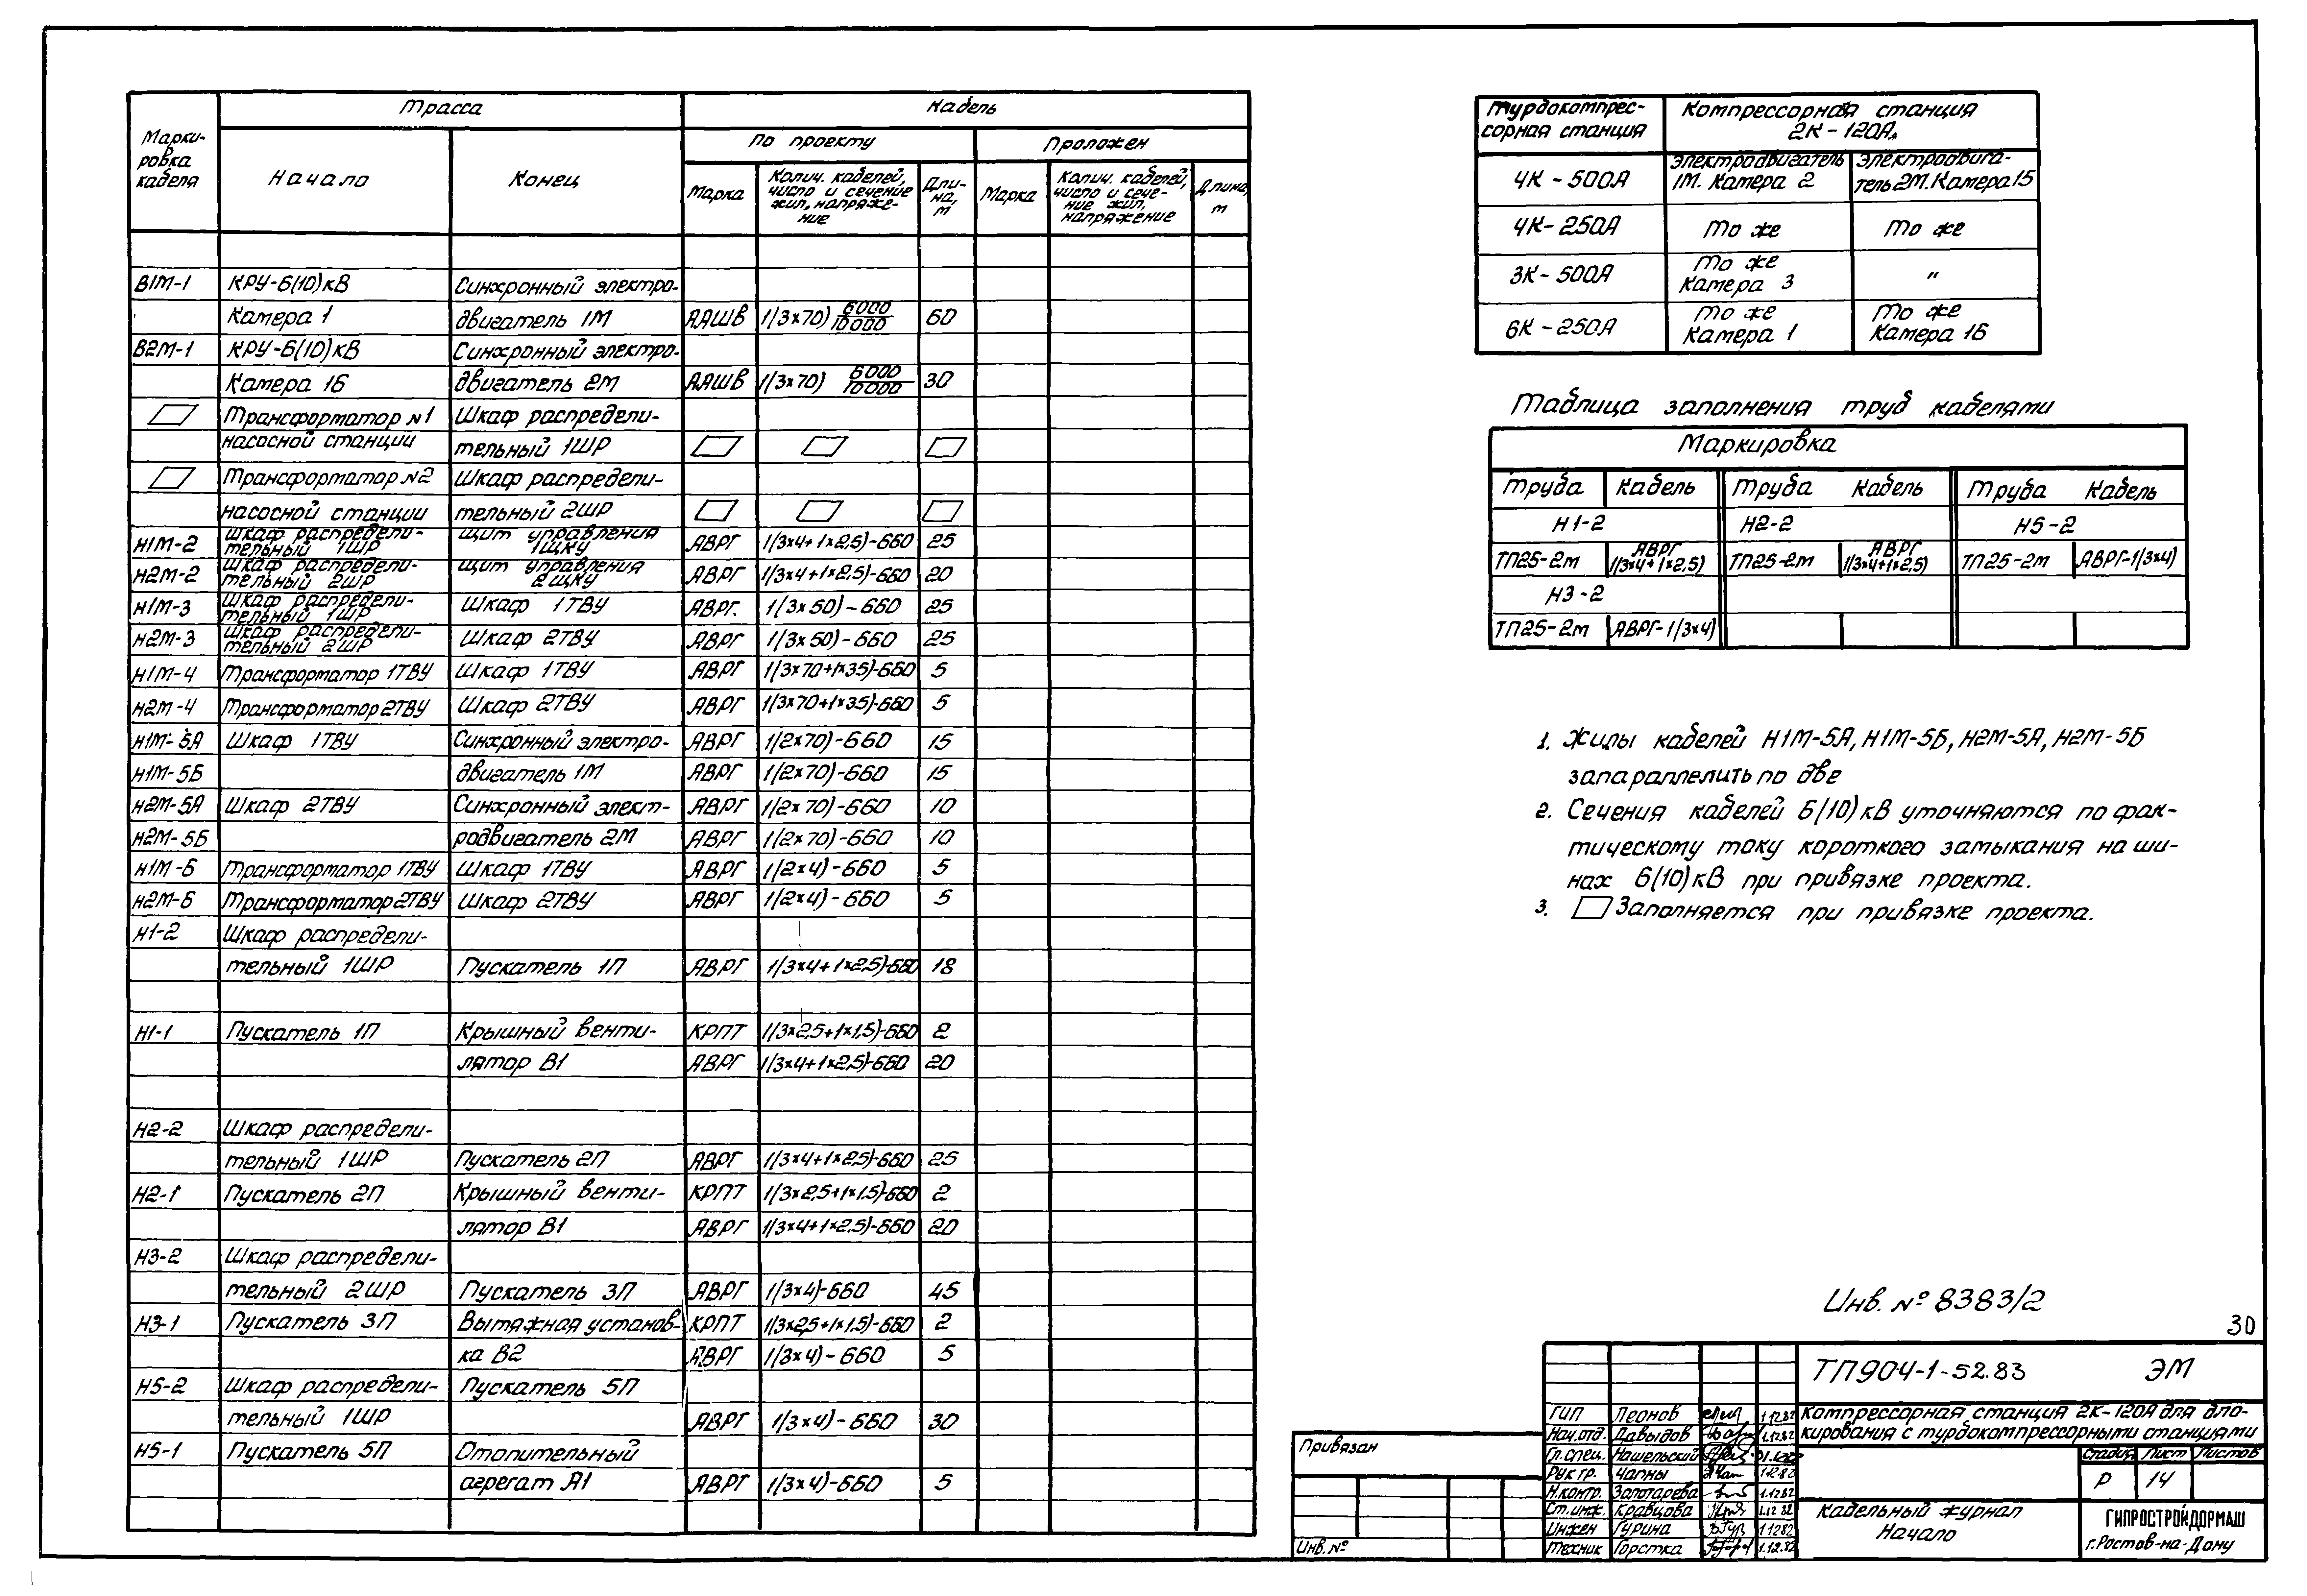 Трасса
Кабель
Марки-
ровка
кабеля
Начало
Конец
По проекту
Проложен
Марка
Колич. кабелей,
число и сечение
жил, напряже-
ние
Дли-
на,
м
Марка
Колич. кабелей,
число и сече-
ние жил,
напряжение
Длина,
м
В1М-1 КРУ-6(10)кВ Синхронный электро-
Камера 1 двигатель 1М ААШВ 1(3×70) 6000/10000 60
В2М-1 КРУ-6(10)кВ Синхронный электро-
Камера 16 двигатель 2М ААШВ 1(3×70) 6000/10000 30
Трансформатор №1 Шкаф распредели-
насосной станции тельный 1ШР
Трансформатор №2 Шкаф распредели-
насосной станции тельный 2ШР
Н1М-2 Шкаф распредели-тельный 1ШР щит управления 1ЩКУ АВРГ 1(3×4+1×2,5)-660 25
Н2М-2 Шкаф распредели-тельный 2ШР щит управления 2ЩКУ АВРГ 1(3×4+1×2,5)-660 20
Н1М-3 Шкаф распредели-тельный 1ШР Шкаф 1ТВУ АВРГ. 1(3×50)-660 25
Н2М-3 Шкаф распредели-тельный 2ШР Шкаф 2ТВУ АВРГ 1(3×50)-660 25
Н1М-4 Трансформатор 1ТВУ Шкаф 1ТВУ АВРГ 1(3×70+1×35)-660 5
Н2М-4 Трансформатор 2ТВУ Шкаф 2ТВУ АВРГ 1(3×70+1×35)-660 5
Н1М-5А Шкаф 1ТВУ Синхронный электро- АВРГ 1(2×70)-660 15
Н1М-5Б двигатель 1М АВРГ 1(2×70)-660 15
Н2М-5А Шкаф 2ТВУ Синхронный элект- АВРГ 1(2×70)-660 10
Н2М-5Б родвигатель 2М АВРГ 1(2×70)-660 10
Н1М-6 Трансформатор 1ТВУ Шкаф 1ТВУ АВРГ 1(2×4)-660 5
Н2М-6 Трансформатор 2ТВУ Шкаф 2ТВУ АВРГ 1(2×4)-660 5
Н1-2 Шкаф распредели-
тельный 1ШР Пускатель 1П АВРГ 1(3×4+1×2,5)-660 18
Н1-1 Пускатель 1П Крышный венти- КРПТ 1(3×2,5+1×1,5)-660 2
лятор В1 АВРГ 1(3×4+1×2,5)-660 20
Н2-2 Шкаф распредели-
тельный 1ШР Пускатель 2П АВРГ 1(3×4+1×2,5)-660 25
Н2-1 Пускатель 2П Крышный венти- КРПТ 1(3×2,5+1×1,5)-660 2
лятор В1 АВРГ 1(3×4+1×2,5)-660 20
Н3-2 Шкаф распредели-
тельный 2ШР Пускатель 3П АВРГ 1(3×4)-660 45
Н3-1 Пускатель 3П Вытяжная установ- КРПТ 1(3×2,5+1×1,5)-660 2
ка В2 АВРГ 1(3×4)-660 5
Н5-2 Шкаф распредели- Пускатель 5П
тельный 1ШР АВРГ 1(3×4)-660 30
Н5-1 Пускатель 5П Отопительный
агрегат А1 АВРГ 1(3×4)-660 5
Турбокомпрес-
сорная станция
Компрессорная станция
2К-120А
4К-500А
Электродвигатель
1М. Камера 2
Электродвига-
тель 2М. Камера 15
4К-250А То же То же
3К-500А То же Камера 3 "
6К-250А То же Камера 1 То же Камера 16
Таблица заполнения труб кабелями
Маркировка
Труба Кабель Труба Кабель Труба Кабель
Н1-2 Н2-2 Н5-2
ТП25-2м АВРГ 1(3×4+1×2,5) ТП25-2м АВРГ 1(3×4+1×2,5) ТП25-2м АВРГ-1(3×4)
Н3-2
ТП25-2м АВРГ-1(3×4)
1. Жилы кабелей Н1М-5А, Н1М-5Б, Н2М-5А, Н2М-5Б
запараллелить по две
2. Сечения кабелей 6(10)кВ уточняются по фак-
тическому току короткого замыкания на ши-
нах 6(10)кВ при привязке проекта.
3. Заполняется при привязке проекта.
Инв. № 8383/2
30
ТП904-1-52.83 ЭМ
Компрессорная станция 2К-120А для бло-
кирования с турбокомпрессорными станциями
ГИП Леонов 1.12.82
Нач.отд. Давыдов 1.12.82
Гл.спец. Нашельский 01.12.82
Рук.гр. Чапны 1.12.82
Н.контр. Золотарева 1.12.82
Ст.инж. Кравцова 1.12.82
Инжен Гурина 1.12.82
Техник Горстка 1.12.82
Стадия Лист Листов
Р 14
Кабельный журнал
Начало
ГИПРОСТРОЙДОРМАШ
г.Ростов-на-Дону
Привязан
Инв.№